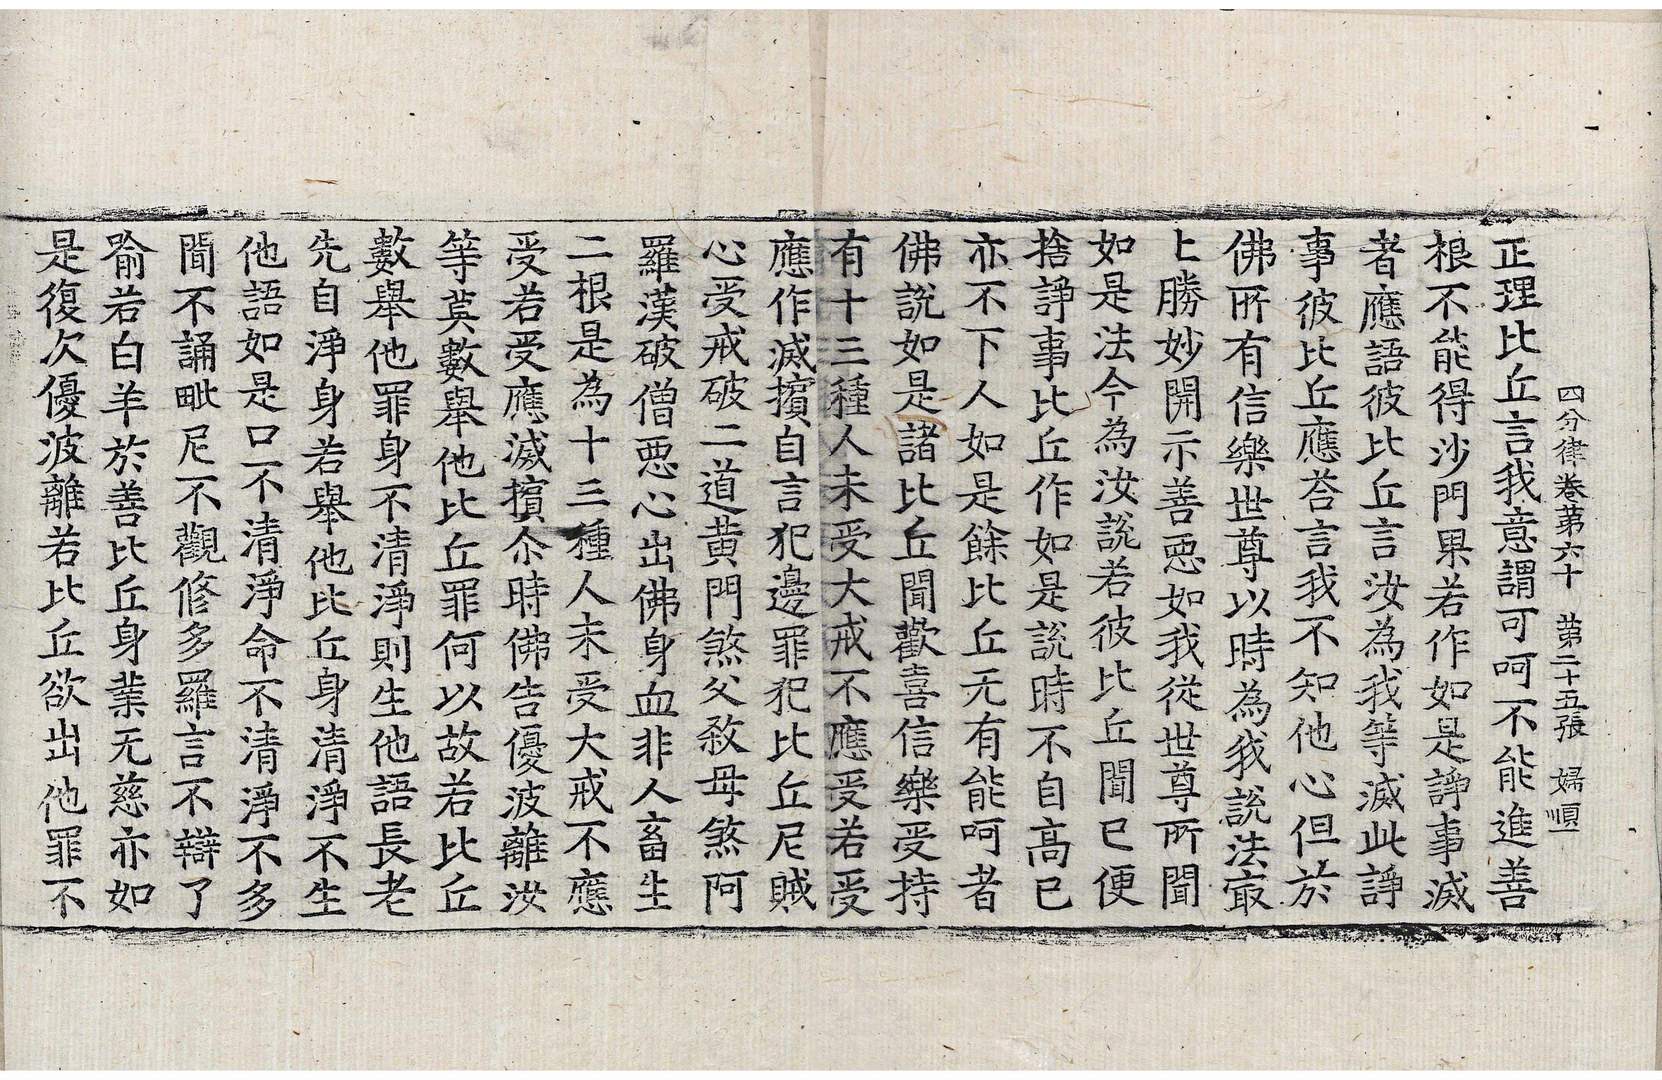 四分律卷第六十　第二十五張　婦順
正理比丘言我意謂可呵不能進善
根不能得沙門果若作如是諍事滅
者應語彼比丘言汝為我等滅此諍
事彼比丘應荅言我不知他心但於
佛所有信樂世尊以時為我說法㝡
上勝妙開示善惡如我從世尊所聞
如是法今為汝說若彼比丘聞已便
捨諍事比丘作如是說時不自高已
亦不下人如是餘比丘无有能呵者
佛說如是諸比丘聞歡喜信樂受持
有十三種人未受大戒不應受若受
應作滅擯自言犯邊罪犯比丘尼賊
心受戒破二道黃門煞父敎母煞阿
羅漢破僧惡心出佛身血非人畜生
二根是為十三種人未受大戒不應
受若受應滅擯尒時佛告優波離汝
等莫數數舉他比丘罪何以故若比丘
數舉他罪身不清淨則生他語長老
先自淨身若舉他比丘身清淨不生
他語如是口不清淨命不清淨不多
聞不誦毗尼不觀修多羅言不辯了
喻若白羊於善比丘身業无慈亦如
是復次優波離若比丘欲出他罪不